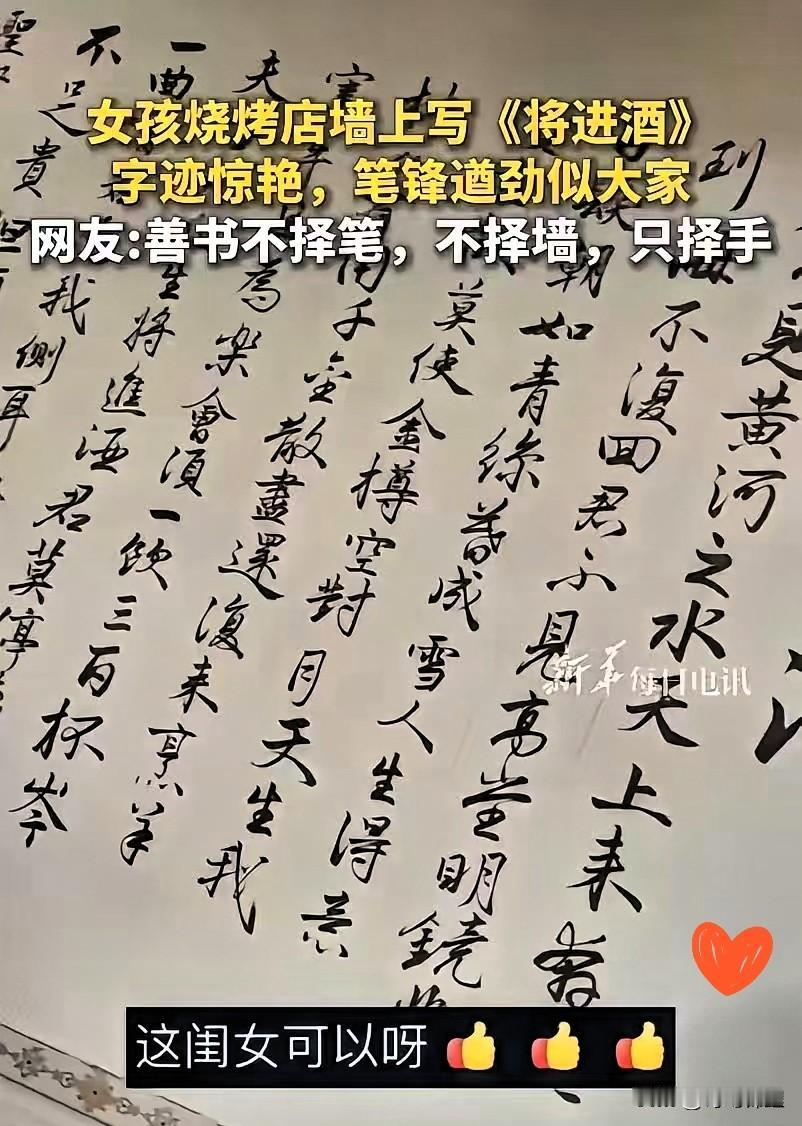 女孩烧烤店墙上写《将进酒》
字迹惊艳，笔锋遒劲似大家
网友:善书不择笔，不择墙，只择手
見黃河之水天上来奔
到海不復回君不見高堂明鏡
朝如青絲暮成雪人生得意
莫使金樽空對月天生我
用千金散盡還復来烹羊
宰為樂會須一飲三百杯岑
夫生將進酒君莫停
一曲我側耳
不足貴
新华每日电讯
这闺女可以呀👍👍👍